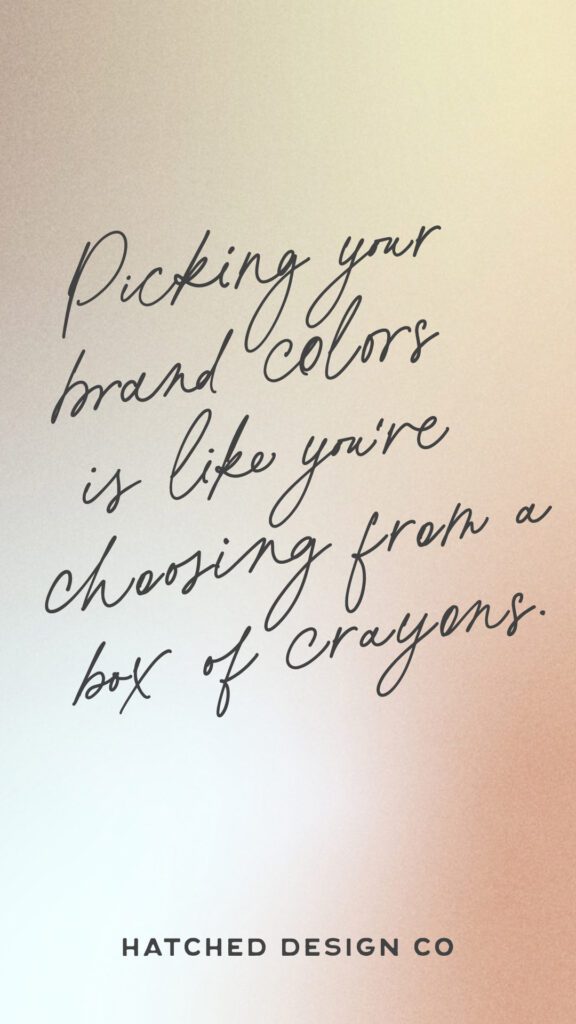 Picking your
brand colors
is like you're
choosing from a
box of crayons.
HATCHED DESIGN CO